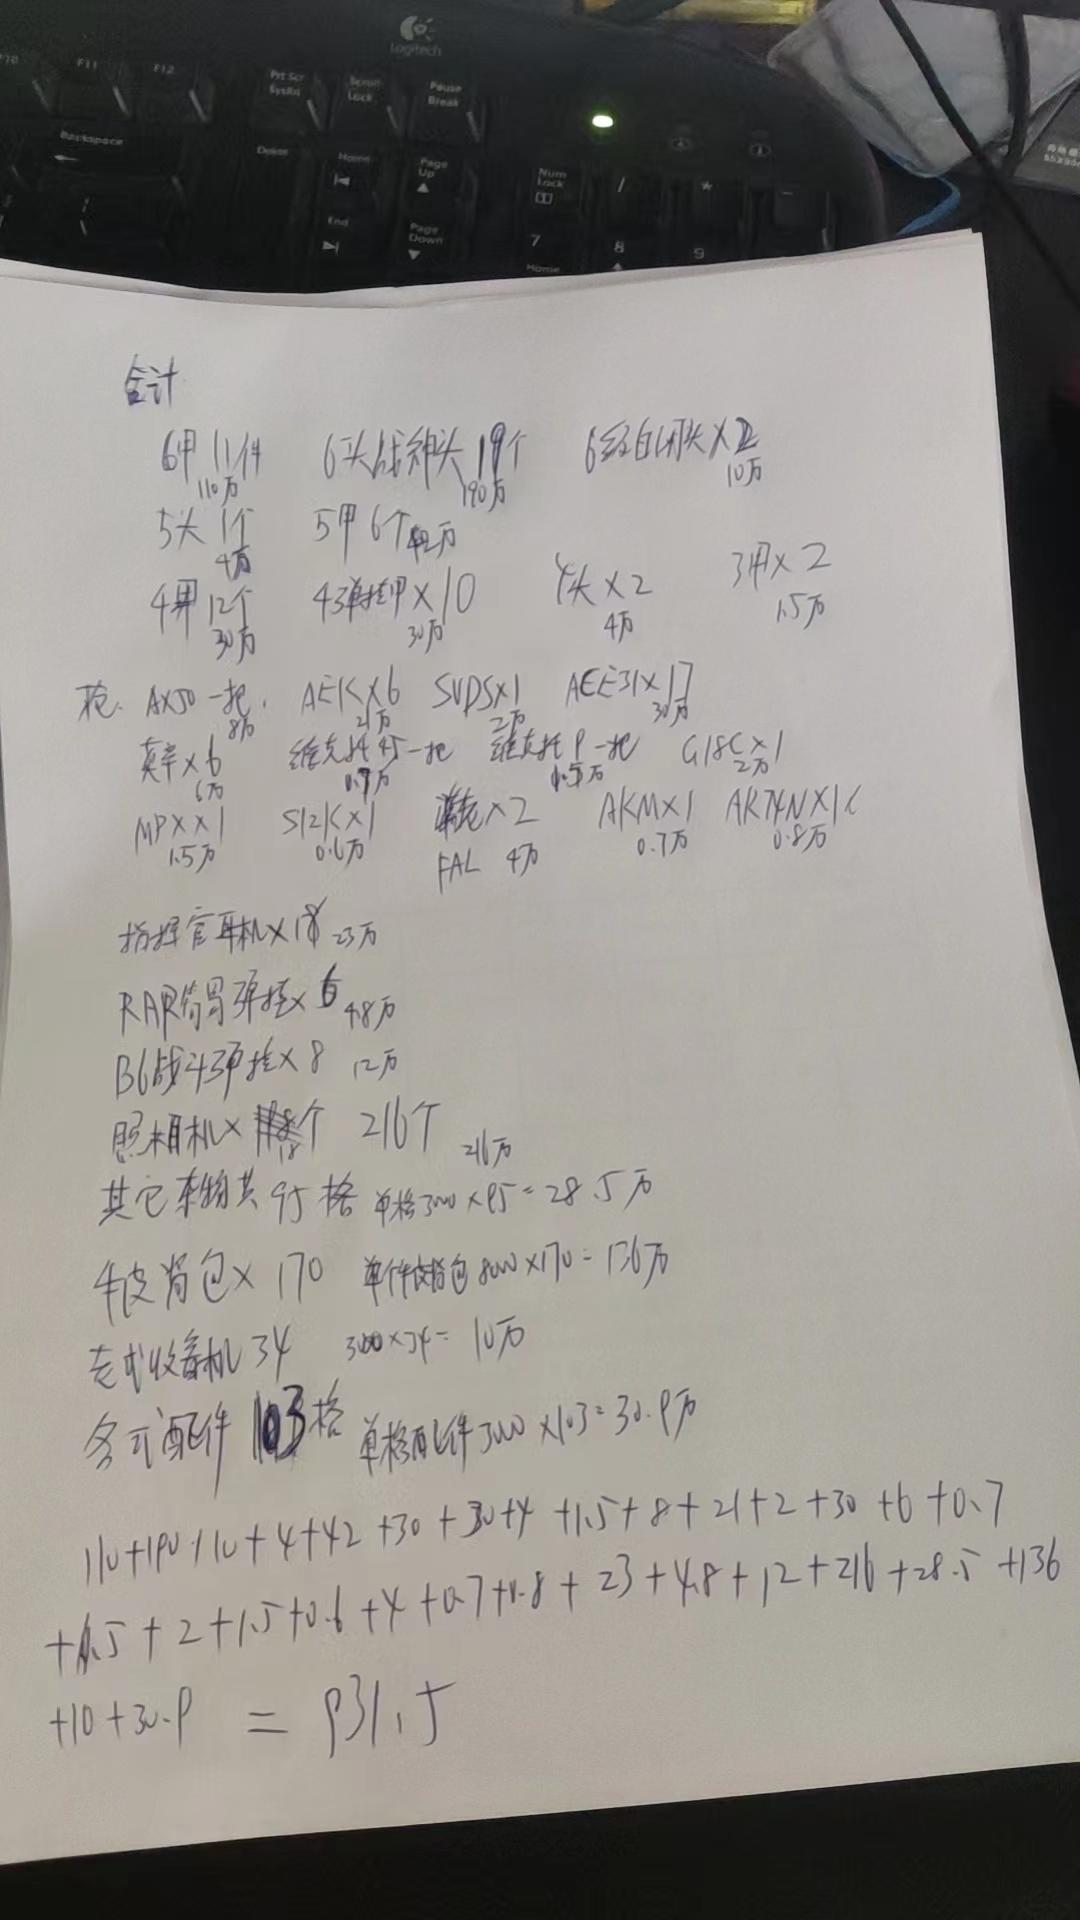 Logitech
F10 F11 F12 Prt Scr SysRq Scroll Lock Pause Break
Backspace Delete Home Page Up Num Lock / * -
End Page Down 7 8 9
Home
合计
6甲11件 6头战神头19个 6级自闭头×2
110万 190万 10万
5头1个 5甲6个 42万
4万
4甲12个 43弹挂甲×10 4头×2 3甲×2
30万 30万 4万 1.5万
枪. AX50一把. AEK×6 SVDS×1 AEE31×17
8万 21万 2万 30万
莫辛×6 维克托45一把 维克托9一把 G18C×1
6万 0.7万 2万
MPX×1 S12K×1 ×2 AKM×1 AK74N×1
1.5万 0.6万 FAL 4万 0.7万 0.8万
指挥官耳机×18 23万
RAR 弹挂×6 4.8万
B6战斗弹挂×8 12万
照相机× 个 216个 216万
其它杂物共95格 单格3000×95=28.5万
牛皮背包×170 单件皮背包8000×170=136万
老式收音机34 3000×34=10万
各式配件103格 单格配件3000×103=30.9万
110+190+10+4+42+30+30+4+1.5+8+21+2+30+6+0.7
+2+1.5+0.6+4+0.7+0.8+23+4.8+12+216+28.5+136
+10+30.9 = 931.5